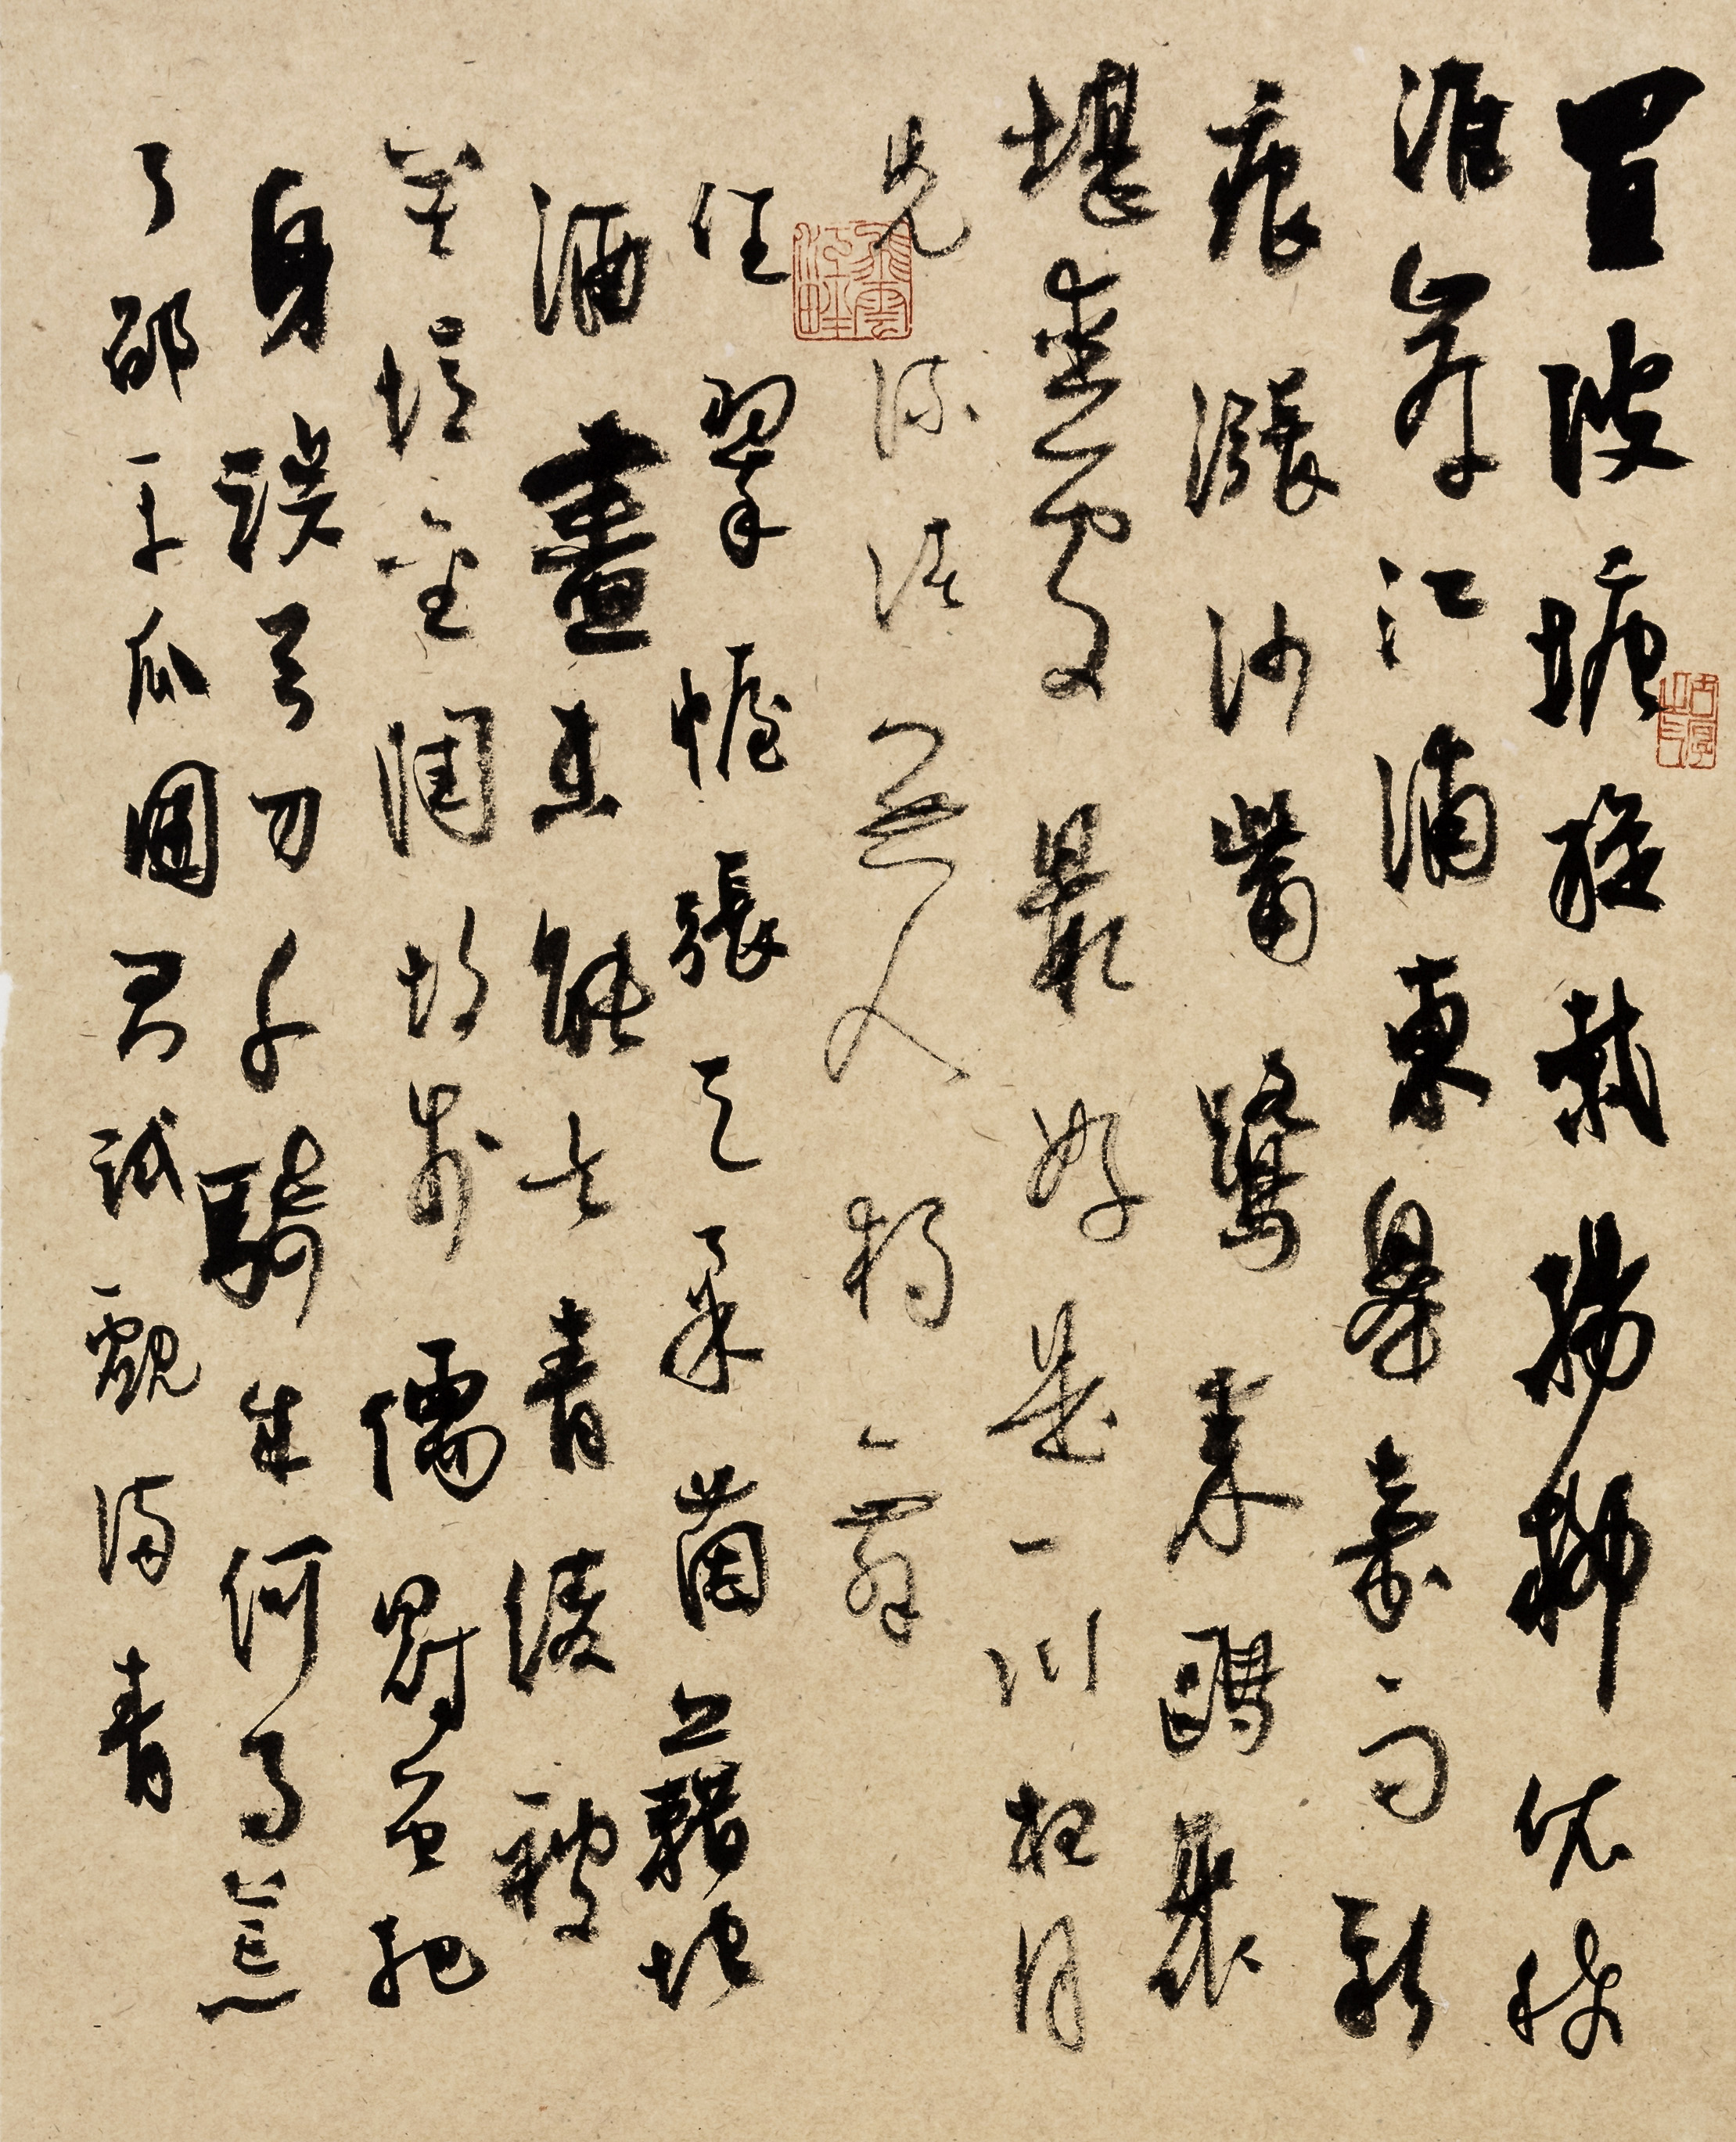 買陂塘旋栽楊柳依稀
淮岸江浦東皋嘉雨新
痕漲沙觜鷺來鷗聚
堪愛處最好是一川夜月
光流渚無人獨舞
任翠幄張天柔茵藉地
酒盡未能去青綾被
莫憶金閨故步儒冠曾把
身誤弓刀千騎成何事荒
了邵平瓜圃君試覷滿青
飛雲江畔